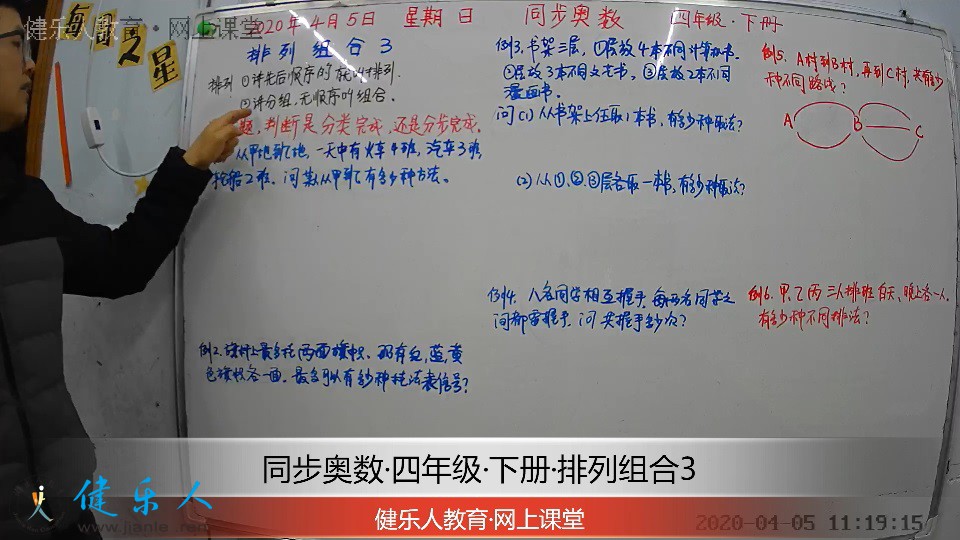 健乐人教育·网上课堂
每日之星
2020年4月5日 星期日 同步奥数 四年级·下册
排列组合3
排列 ①讲先后顺序的就叫排列.
②讲分组,无顺序叫组合.
题,判断是分类完成,还是分步完成.
从甲地到乙地,一天中有火车4班,汽车3班,
轮船2班.问某从甲到乙有多少种方法。
例2.旗杆上最多挂两面旗帜.现有红,蓝,黄
色旗帜各一面.最多可以有多少种挂法表信号?
例3.书架三层,①层放4本不同计算机书.
②层放3本不同文艺书,③层放2本不同
漫画书.
问(1)从书架上任取1本书,有多少种取法?
(2)从①、②、③层各取一本书,有多少种取法?
例4. 八名同学相互握手.每两名同学之
间都需握手.问共握手多少次?
例5. A村到B村,再到C村,共有多少
种不同路线?
A B C
例6.甲、乙、丙三人排班白天、晚上各一人.
有多少种不同排法?
同步奥数·四年级·下册·排列组合3
健乐人
www.jianle
健乐人教育·网上课堂
2020-04-05 11:19:15